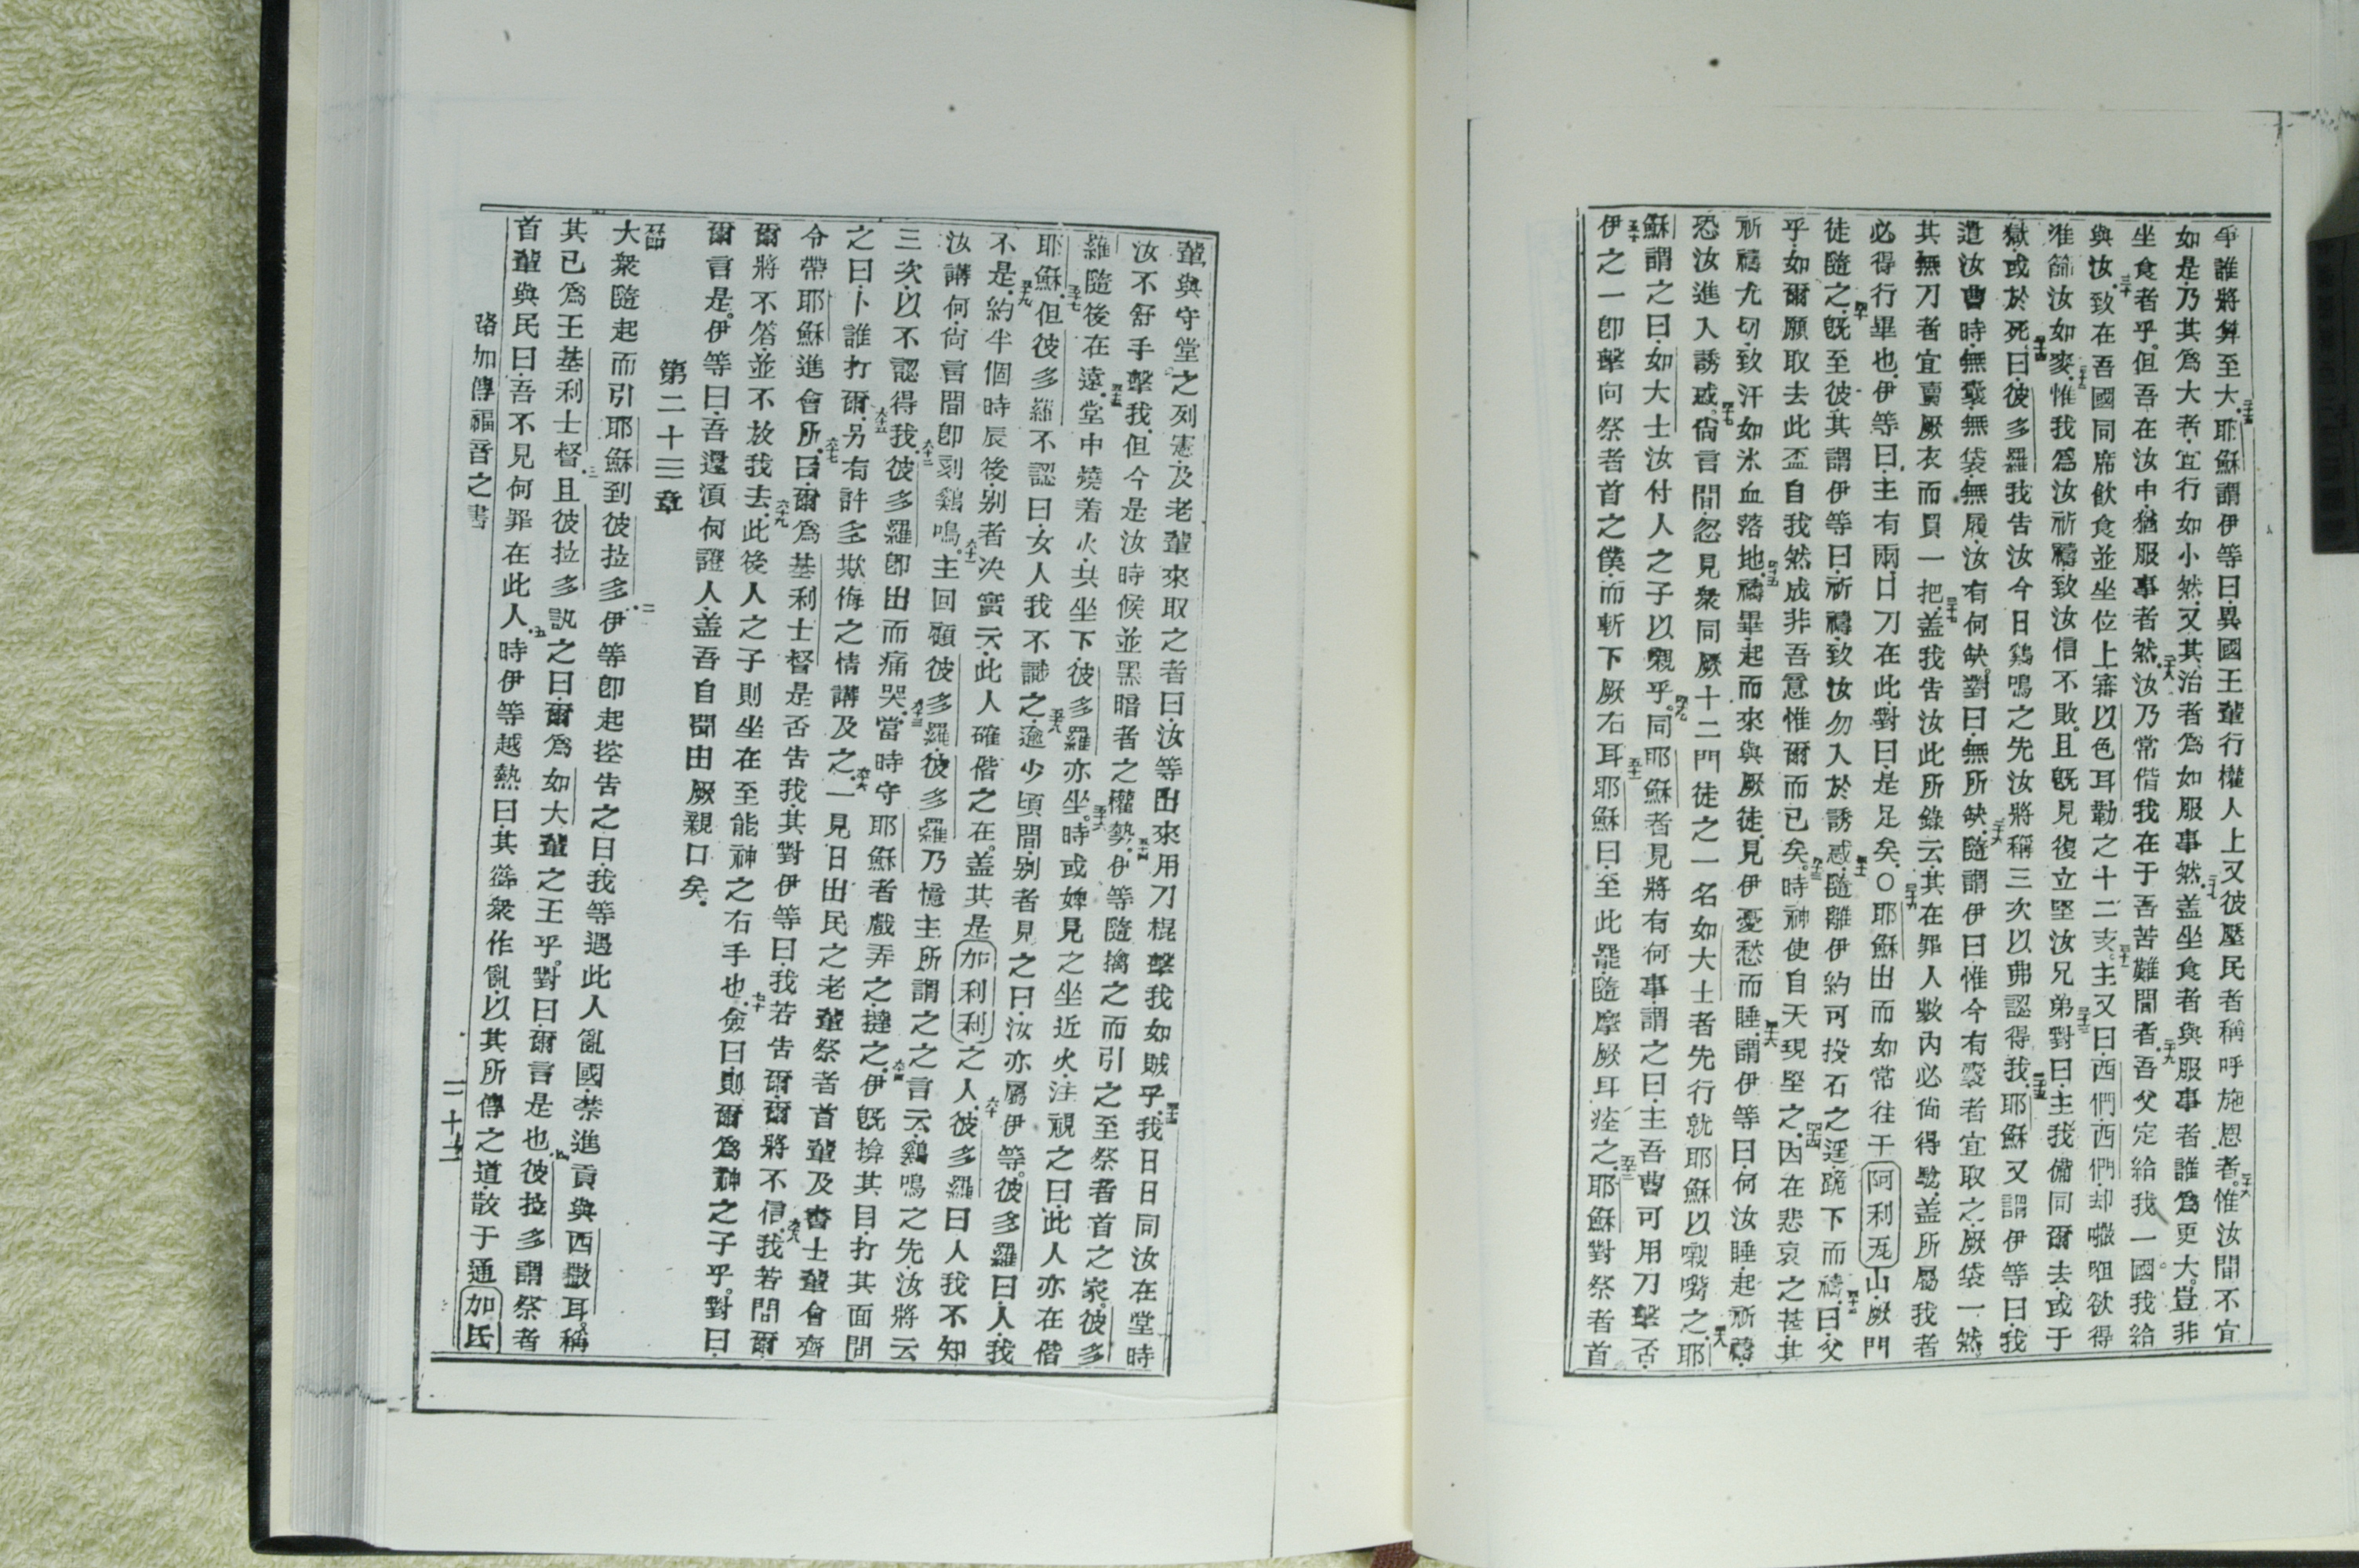 爭誰將算至大耶穌謂伊等曰異國王輩行權人上又彼壓民者稱呼施恩者惟汝間不宜
如是乃其為大者宜行如小然又其治者為如服事然盖坐食者與服事者誰為更大豈非
坐食者乎但吾在汝中猶服事者然汝乃常偕我在于吾苦難間者吾父定給我一國我給
與汝致在吾國同席飲食並坐位上審以色耳勒之十二支主又曰西們西們却𠯗欲得
汝如麥惟我為汝祈禱致汝信不敗且旣見復立堅汝兄弟對曰主我備同爾去或于
獄或於死曰彼多羅我告汝今日鷄鳴之先汝將稱三次以弗認得我耶穌又謂伊等曰我
遣汝曹時無囊無袋無履汝有何缺對曰無所缺隨謂伊曰惟今有囊者宜取之厥袋一然
其無刀者宜賣厥衣而買一把盖我告汝此所錄云其在罪人數內必尚得騐盖所屬我者
必得行畢也伊等曰主有兩口刀在此對曰是足矣〇耶穌出而如常往于阿利瓦山厥門
徒隨之旣至彼其謂伊等曰祈禱致汝勿入於誘惑隨離伊約可投石之遥跪下而禱曰父
乎如爾願取去此盃自我然成非吾意惟爾而已矣時神使自天現堅之因在悲哀之甚其
祈禱尤切致汗如氷血落地禱畢起而來與厥徒見伊憂愁而睡謂伊等曰何汝睡起祈禱
恐汝進入誘惑尙言間忽見衆同厥十二門徒之一名如大士者先行就耶穌以嘴之耶
穌謂之曰如大士汝付人之子以親乎同耶穌者見將有何事謂之曰主吾曹可用刀擊否
伊之一卽擊向祭者首之僕而斬下厥右耳耶穌曰至此罷隨摩厥耳痊之耶穌對祭者首
輩與守堂之列憲及老輩來取之者曰汝等出來用刀棍擊我如賊乎我日日同汝在堂時
汝不舒手擊我但今是汝時候並黑暗者之權勢伊等隨擒之而引之至祭者首之家彼多
羅隨後在遠堂中燒着火共坐下彼多羅亦坐時或婢見之坐近火注視之曰此人亦在偕
耶穌但彼多羅不認曰女人我不識之逾少頃間别者見之曰汝亦屬伊等彼多羅曰人我
不是約半個時辰後别者决實云此人確偕之在盖其是加利利之人彼多羅曰人我不知
汝講何尙言間卽刻鷄鳴主回顧彼多羅彼多羅乃憶主所謂之之言云鷄鳴之先汝將云
三次以不認得我彼多羅卽出而痛哭當時守耶穌者戲弄之撻之伊旣揜其目打其面問
之曰卜誰打爾另有許多欺侮之情講及之一見日出民之老輩祭者首輩及書士輩會齊
令帶耶穌進會所曰爾爲基利士督是否告我其對伊等曰我若告爾爾將不信我若問爾
爾將不答並不放我去此後人之子則坐在至能神之右手也僉曰則爾爲神之子乎對曰
爾言是伊等曰吾還湏何證人盖吾自聞由厥親口矣
第二十三章
大衆隨起而引耶穌到彼拉多伊等卽起控告之曰我等遇此人亂國禁進貢與西撒耳稱
其已爲王基利士督且彼拉多訊之曰爾爲如大輩之王乎對曰爾言是也彼拉多謂祭者
首輩與民曰吾不見何罪在此人時伊等越熱曰其聳衆作亂以其所傳之道散于通加氐
路加傳福音之書 二十二